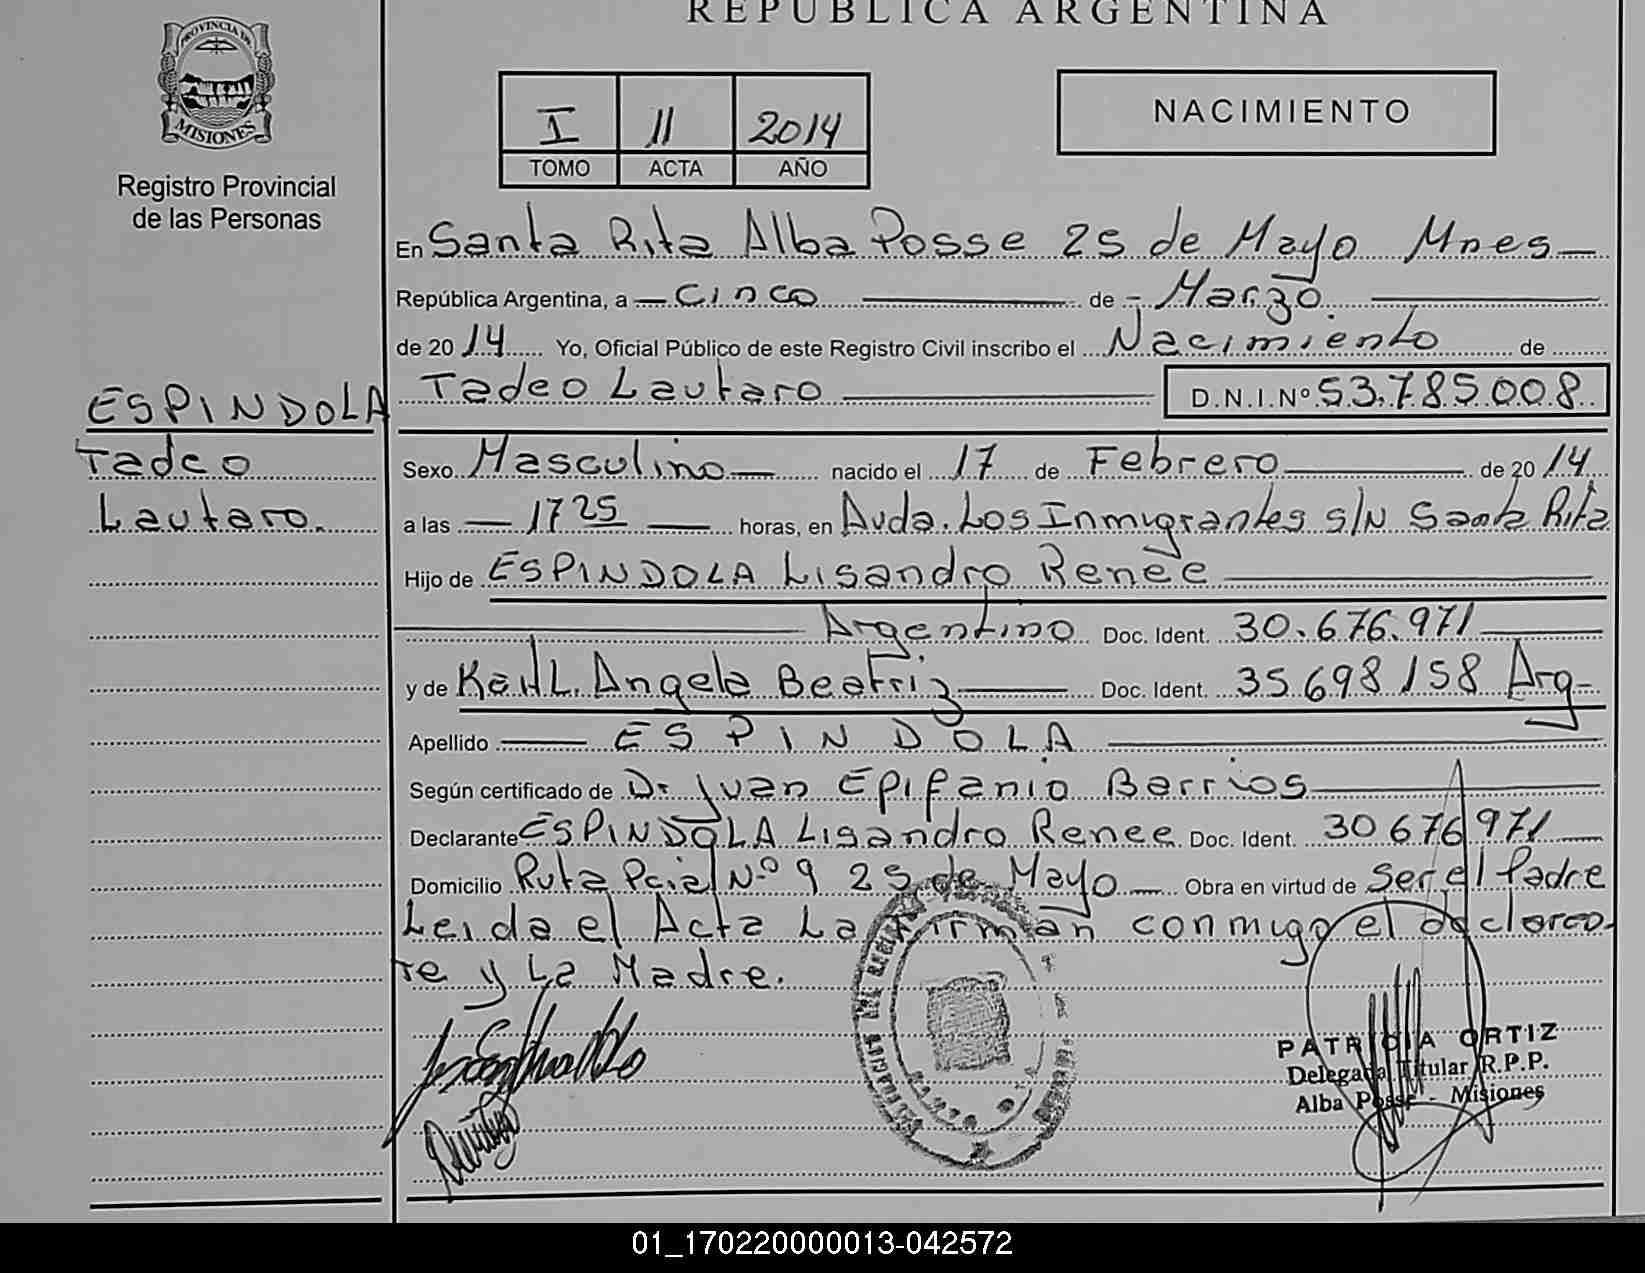 REPUBLICA ARGENTINA
PROVINCIA DE
MISIONES
Registro Provincial
de las Personas
I 11 2014
TOMO ACTA AÑO
NACIMIENTO
En Santa Rita Alba Posse 25 de Mayo Mnes
República Argentina, a Cinco de Marzo
de 2014 Yo, Oficial Público de este Registro Civil inscribo el Nacimiento de
Tadeo Lautaro D.N.I.Nº 53.785.008
ESPINDOLA
Tadeo
Lautaro.
Sexo Masculino nacido el 17 de Febrero de 2014
a las 17 25 horas, en Avda. Los Inmigrantes s/N Santa Rita
Hijo de ESPINDOLA Lisandro Renee
Argentino Doc. Ident. 30.676.971
y de KAHL. Angela Beatriz Doc. Ident. 35.698.158 Arg
Apellido ESPINDOLA
Según certificado de Dr Juan Epifanio Barrios
Declarante ESPINDOLA Lisandro Renee Doc. Ident. 30 676 971
Domicilio Ruta Pcial Nº 9 25 de Mayo Obra en virtud de ser el Padre
Leida el Acta La Firman conmigo el declaran
te y La Madre.
PATRICIA ORTIZ
Delegada Titular R.P.P.
Alba Posse - Misiones
01_170220000013-042572